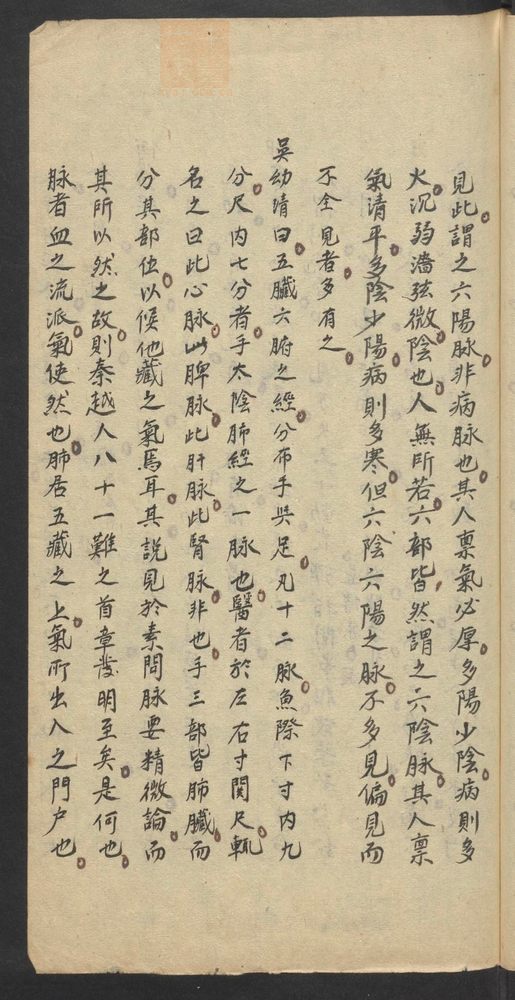 見此謂之六陽脉非病脉也其人禀氣必厚多陽少陰病則多
火沉弱濇弦微陰也人無所若六部皆然謂之六陰脉其人禀
氣清平多陰少陽病則多寒但六陰六陽之脉不多見偏見而
不全見者多有之
吳幼清曰五臟六腑之經分布手與足凡十二脉魚際下寸内九
分尺内七分者手太陰肺經之一脉也醫者於左右寸関尺輒
名之曰此心脉此脾脉此肝脉此腎脉非也手三部皆肺臟而
分其部位以候他藏之氣焉耳其說見於素問脉要精微論而
其所以然之故則秦越人八十一難之首章發明至矣是何也
脉者血之流派氣使然也肺居五藏之上氣所出入之門户也